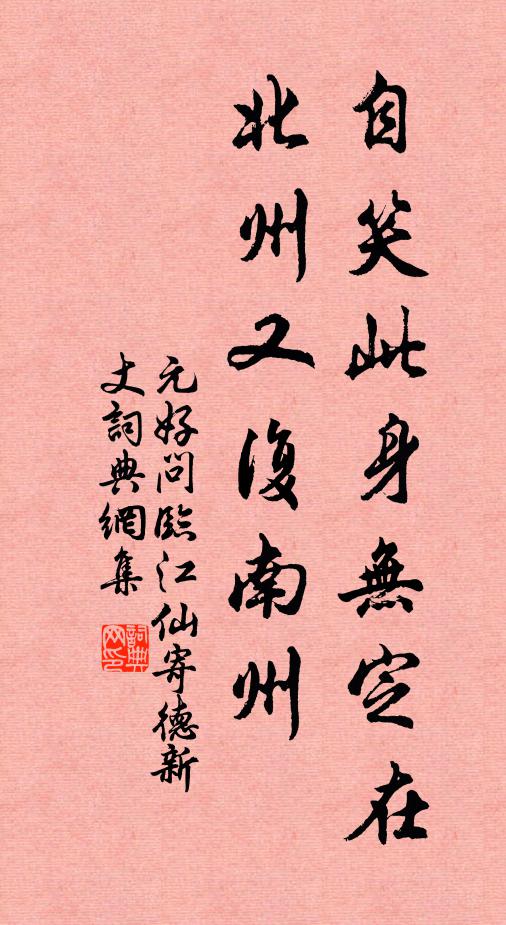 自笑此身無定在
北州又復南州
元好問臨江仙寄德新
丈詞典網集
詞典網印